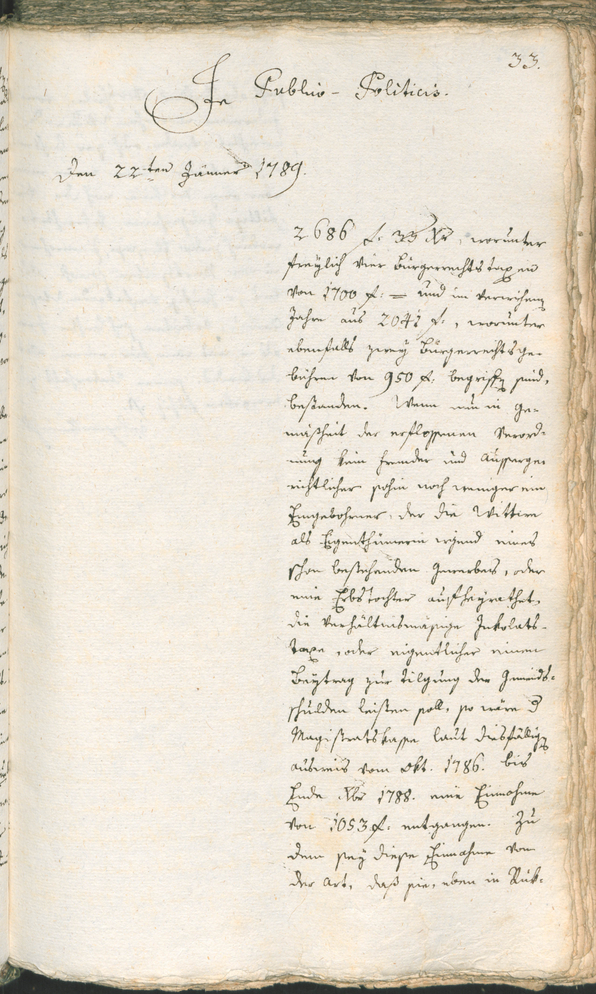 33.
In Publico-Politicis.
den 22ten Jänner 1789.
2686 f. 33 Xr, worunter
freylich vier Bürgerrechtstaxen
von 1700 f: = und im verwichenen
Jahre aus 2041 f., worunter
ebenfalls zwey Bürgerrechtsge-
bühren von 950 f. begriffen sind,
bestanden. Wenn nun in Ge-
mäßheit der erflossenen Verord-
nung kein fremder und Aussergee
richtlicher sohin noch weniger ein
Eingebohrner, der die Wittwe
als Eigenthümerin irgend eines
schon bestehenden Gewerbes, oder
eine Erbstochter ausheyrathet,
die verhältnismäsige Inkolats-
taxe, oder eigentlicher einen
Beytrag zur Tilgung der Gmeinds-
schulden leisten soll, so wäre d
Magistratskasse laut diesfälligen
ausweis vom Okt. 1786. bis
Ende Xbr 1788. eine Einnahme
von 1053 f. entgangen. Zu
dem sey diese Einnahme von
der Art, daß sie, eben in Rük-